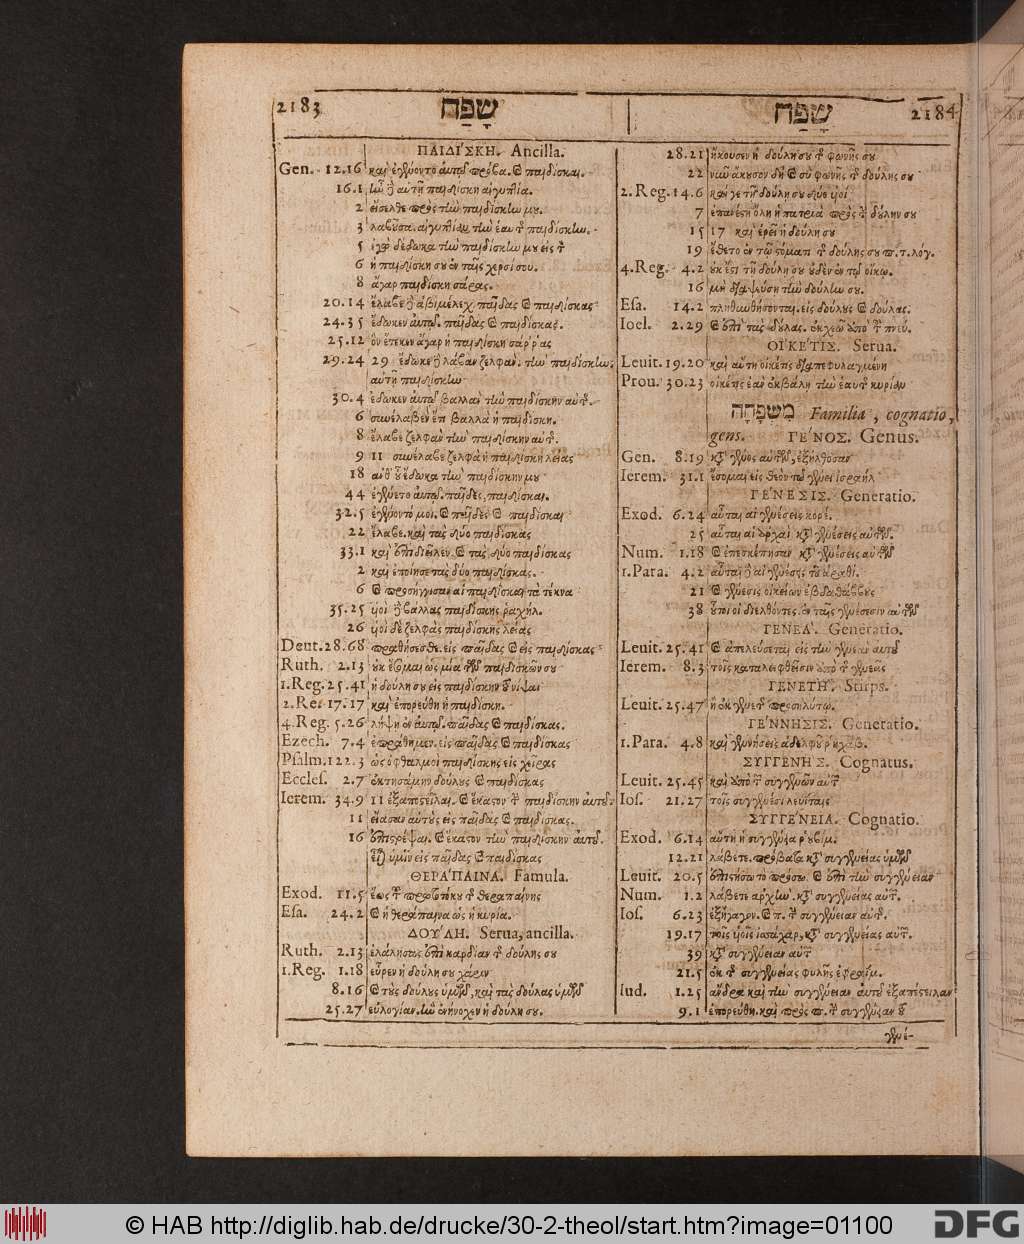 2183 שָפַח
שָפַח 2184
ΠΑΙΔΙ΄ΣΚΗ. Ancilla.
Gen. 12.16 καὶ ἐγένοντο αὐτῷ πρόβα. καὶ παιδίσκαι.
16.1 ἦν δὲ αὐτῇ παιδίσκη αἰγυπτία.
2 εἴσελθε πρὸς τὴν παιδίσκην μου.
3 λαβοῦσα. αἰγυπτίαν τὴν ἑαυ τ παιδίσκην.
5 ἐγὼ δέδωκα τὴν παιδίσκην μου εἰς τ
6 ἡ παιδίσκη σου ἐν ταῖς χερσί σου.
8 ἄγαρ παιδίσκη σάρας.
20.14 ἔλαβε δὲ ἀβιμέλεχ παῖδας καὶ παιδίσκας
24.35 ἔδωκεν αὐτῷ. παῖδας καὶ παιδίσκας.
25.12 ὃν ἔτεκεν ἄγαρ ἡ παιδίσκη σάρρας
29.24 29 ἔδωκε δὲ λάβαν ζελφαν. τὴν παιδίσκην.
αὐτῇ παιδίσκην
30.4 ἔδωκεν αὐτῷ βαλλαν τὴν παιδίσκην αὐτ.
6 συνέλαβεν ἔτι βαλλα ἡ παιδίσκη.
8 ἔλαβε ζελφαν τὴν παιδίσκην αὐτ.
9 11 συνέλαβε ζελφα ἡ παιδίσκη λείας
18 ἀνθ οὗ ἔδωκα τὴν παιδίσκην μου
44 ἐγένετο αὐτῷ. παῖδες, παιδίσκαι.
32.5 ἐγένοντό μοι. καὶ παῖδες καὶ παιδίσκαι
22 ἔλαβε. καὶ τὰς δύο παιδίσκας
33.1 καὶ ἐπιδιεῖλεν. καὶ τὰς δύο παιδίσκας
2 καὶ ἐποίησε τὰς δύο παιδίσκας.
6 καὶ προσήγγισαν αἱ παιδίσκαι τὰ τέκνα
35.25 υἱοὶ δὲ βάλλας παιδίσκης ραχήλ.
26 υἱοὶ δὲ ζελφᾶς παιδίσκης λείας
Deut. 28.68 πραθήσεσθε. εἰς παῖδας καὶ εἰς παιδίσκας
Ruth. 2.13 οὐκ ἔσομαι ὡς μία τῶν παιδισκῶν σου
1.Reg. 25.41 ἡ δούλη σου εἰς παιδίσκην τοῦ νίψαι
2.Re. 17.17 καὶ ἐπορεύθη ἡ παιδίσκη.
4.Reg. 5.26 λήψῃ ἐν αὐτῷ. παῖδας καὶ παιδίσκας.
Ezech. 7.4
Psalm. 122.3 ὡς ὀφθαλμοὶ παιδίσκης εἰς χεῖρας
Eccles. 2.7 ἐκτησάμην δούλους καὶ παιδίσκας
Ierem. 34.9 11 ἐξαποστεῖλαι. καὶ ἕκαστον τ παιδίσκην αὐτοῦ.
11 εἴασαν αὐτοὺς εἰς παῖδας καὶ παιδίσκας.
16 ἐπιστρέψαι. καὶ ἕκαστον τὴν παιδίσκην αὐτοῦ.
ὑμῖν εἰς παῖδας καὶ παιδίσκας
ΘΕΡΑ΄ΠΑΙΝΑ. Famula.
Exod. 11.5 ἕως τ πρωτοτόκου τ θεραπαίνης
Esa. 24.2 καὶ ἡ θεράπαινα ὡς ἡ κυρία.
ΔΟΥ΄ΛΗ. Serua, ancilla.
Ruth. 2.13 ἐλάλησας ἐπὶ καρδίαν τ δούλης σου
1.Reg. 1.18 εὗρεν ἡ δούλη σου χάριν
8.16 καὶ τοὺς δούλους ὑμῶν, καὶ τὰς δούλας ὑμῶν
25.27 εὐλογίαν. ἣν ἐνήνοχεν ἡ δούλη σου.
28.21 ἤκουσεν ἡ δούλη σου τ φωνῆς σου
22 νῦν ἄκουσον δὴ καὶ σὺ φωνῆς τ δούλης σου
2.Reg. 14.6 καί γε τῇ δούλῃ σου δύο υἱοὶ
7 ἐπανέστη ὅλη ἡ πατριὰ πρὸς τ δούλην σου
15 17 καὶ ἐρεῖ ἡ δούλη σου
19 ἔθετο ἐν τῷ στόματι τ δούλης σου π. τ. λόγ.
4.Reg. 4.2 οὐκ ἔστι τῇ δούλῃ σου οὐδὲν ἐν τῷ οἴκῳ.
16 μὴ διαψεύσῃ τὴν δούλην σου.
Esa. 14.2 πληθυνθήσονται. εἰς δούλους καὶ δούλας.
Ioel. 2.29 καὶ ἐπὶ τὰς δούλας. ἐκχεῶ ἀπὸ τ πνεύ.
ΟΙ᾿ΚΕΤΙΣ. Serua.
Leuit. 19.20 καὶ αὕτη οἰκέτις διαπεφυλαγμένη
Prou. 30.23 οἰκέτις ἐὰν ἐκβάλῃ τὴν ἑαυτ κυρίαν
מִשְפָּחָה Familia, cognatio,
gens. ΓΕ΄ΝΟΣ. Genus.
Gen. 8.19 κατὰ γένος αὐτῶν, ἐξήλθοσαν
Ierem. 31.1 ἔσομαι εἰς θεὸν τῷ γένει ἰσραήλ
ΓΕ΄ΝΕΣΙΣ. Generatio.
Exod. 6.24 αὗται αἱ γενέσεις κορέ.
25 αὗται αἱ ἀρχαὶ κατὰ γενέσεις αὐτῶν.
Num. 1.18 καὶ ἐπεσκέπησαν κατὰ γενέσεις αὐτῶν
1.Para. 4.2 αὗται δὲ αἱ γενέσεις τοῦ ἀραθί.
21 καὶ γενέσεις οἰκείων
38 οὗτοι οἱ διελθόντες. ἐν ταῖς γενέσεσιν αὐτῶν
ΓΕΝΕΑ΄. Generatio.
Leuit. 25.41 καὶ ἀπελεύσεται εἰς τὴν γενεὰν αὐτοῦ
Ierem. 8.3 τοῖς καταλειφθεῖσιν ἀπὸ τ γενεᾶς
ΓΕΝΕΤΗ΄. Stirps.
Leuit. 25.47 ἢ ἐκ γενετ προσηλύτῳ.
ΓΕ΄ΝΝΗΣΙΣ. Generatio.
1.Para. 4.8 καὶ γεννήσεις ἀδελφοῦ ρηχάβ.
ΣΥΓΓΕΝΗ΄Σ. Cognatus.
Leuit. 25.45 καὶ ἀπὸ τ συγγενῶν αὐτ
Ios. 21.27 τοῖς συγγενέσι λευίταις
ΣΥΓΓΕ΄ΝΕΙΑ. Cognatio.
Exod. 6.14 αὕτη ἡ συγγένεια ρουβιμ.
12.21 λάβετε. πρόβατα κατὰ συγγενείας ὑμῶν
Leuit. 20.5 ἐπιστήσω τὸ πρόσω. καὶ ἐπὶ τὴν συγγένειαν
Num. 1.2 λάβετε ἀρχὴν. κατὰ συγγενείας αὐτ.
Ios. 6.23 ἐξήγαγον. καὶ π. τ συγγένειαν αὐτ.
19.17 τοῖς υἱοῖς ἰσσάχαρ, κατὰ συγγενείας αὐτ.
39 κατὰ συγγένειαν αὐτ
21.5 ἐκ τ συγγενείας φυλῆς ἐφραίμ.
Iud. 1.25 ἄνδρα καὶ τὴν συγγένειαν αὐτοῦ ἐξαπέστειλαν
9.1 ἐπορεύθη. καὶ πρὸς π. τ συγγένειαν τοῦ
γενέ-
© HAB http://diglib.hab.de/drucke/30-2-theol/start.htm?image=01100
DFG